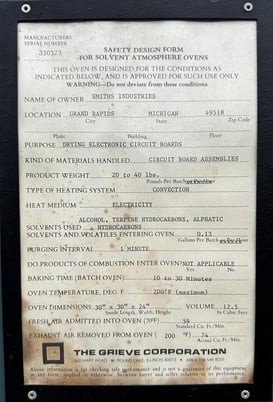 MANUFACTURERS
SERIAL NUMBER
330523
SAFETY DESIGN FORM
FOR SOLVENT ATMOSPHERE OVENS
THIS OVEN IS DESIGNED FOR THE CONDITIONS AS
INDICATED BELOW, AND IS APPROVED FOR SUCH USE ONLY
WARNING—Do not deviate from these conditions
NAME OF OWNER SMITHS INDUSTRIES
LOCATION GRAND RAPIDS MICHIGAN 49518
City State Zip Code
Plant Building Floor
PURPOSE DRYING ELECTRONIC CIRCUIT BOARDS
KIND OF MATERIALS HANDLED CIRCUIT BOARD ASSEMBLIES
PRODUCT WEIGHT 20 to 40 lbs.
Pounds Per Batch or Per Hour
TYPE OF HEATING SYSTEM CONVECTION
HEAT MEDIUM ELECTRICITY
ALCOHOL, TERPINE HYDROCARBONS, ALPHATIC
SOLVENTS USED HYDROCARBONS
SOLVENTS AND VOLATILES ENTERING OVEN 0.13
Gallons Per Batch or Per Hour
PURGING INTERVAL 1 MINUTE
DO PRODUCTS OF COMBUSTION ENTER OVEN? NOT APPLICABLE
Yes No
BAKING TIME (BATCH OVEN) 10 to 30 Minutes
OVEN TEMPERATURE, DEG. F. 200°F (maximum)
OVEN DIMENSIONS 30" x 30" x 24" VOLUME 12.5
Inside Length, Width, Height In Cubic Feet
FRESH AIR ADMITTED INTO OVEN (70°F) 59
Standard Cu. Ft./Min.
EXHAUST AIR REMOVED FROM OVEN ( 200 °F) 74
Actual Cu. Ft./Min.
THE GRIEVE CORPORATION
500 HART ROAD ROUND LAKE, ILLINOIS 60073 AREA 708 546-8225
Above information is for checking safe performance and is not a guarantee of this equipment
in any form, implied or otherwise, between buyer and seller relative to its performance.